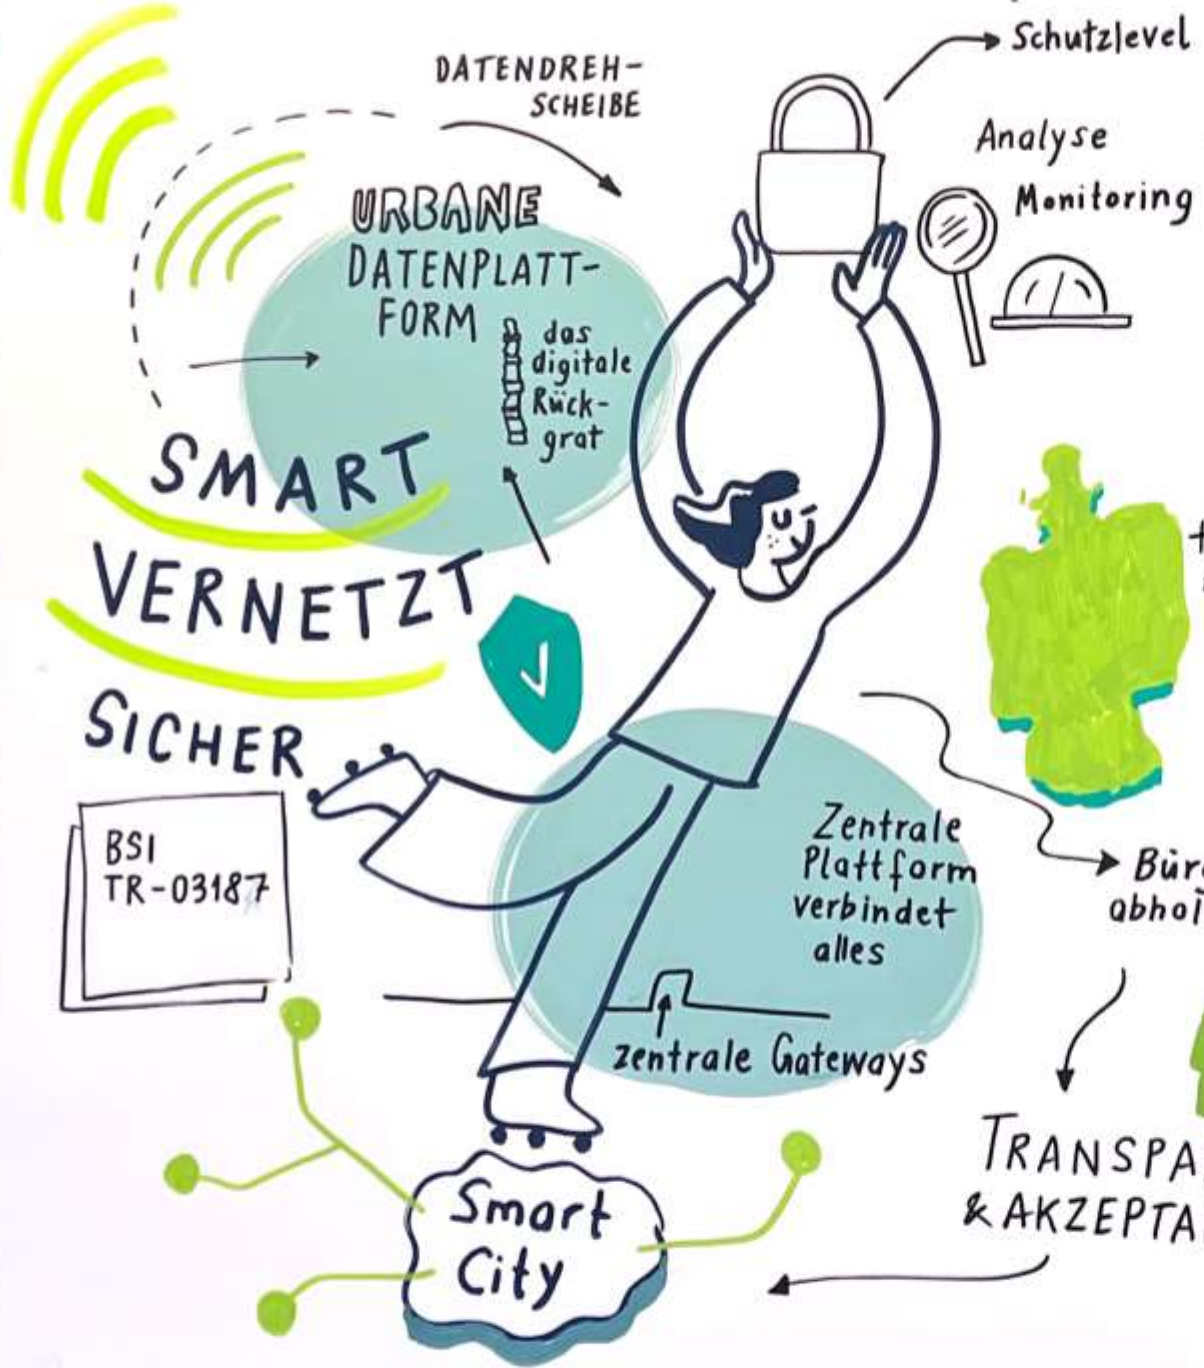 Schutzlevel
DATENDREH-
SCHEIBE
Analyse
Monitoring
URBANE
DATENPLATT-
FORM
das
digitale
Rück-
grat
SMART
VERNETZT
SICHER
BSI
TR-03187
Zentrale
Plattform
verbindet
alles
zentrale Gateways
TRANSPA
& AKZEPTA
Smart
City